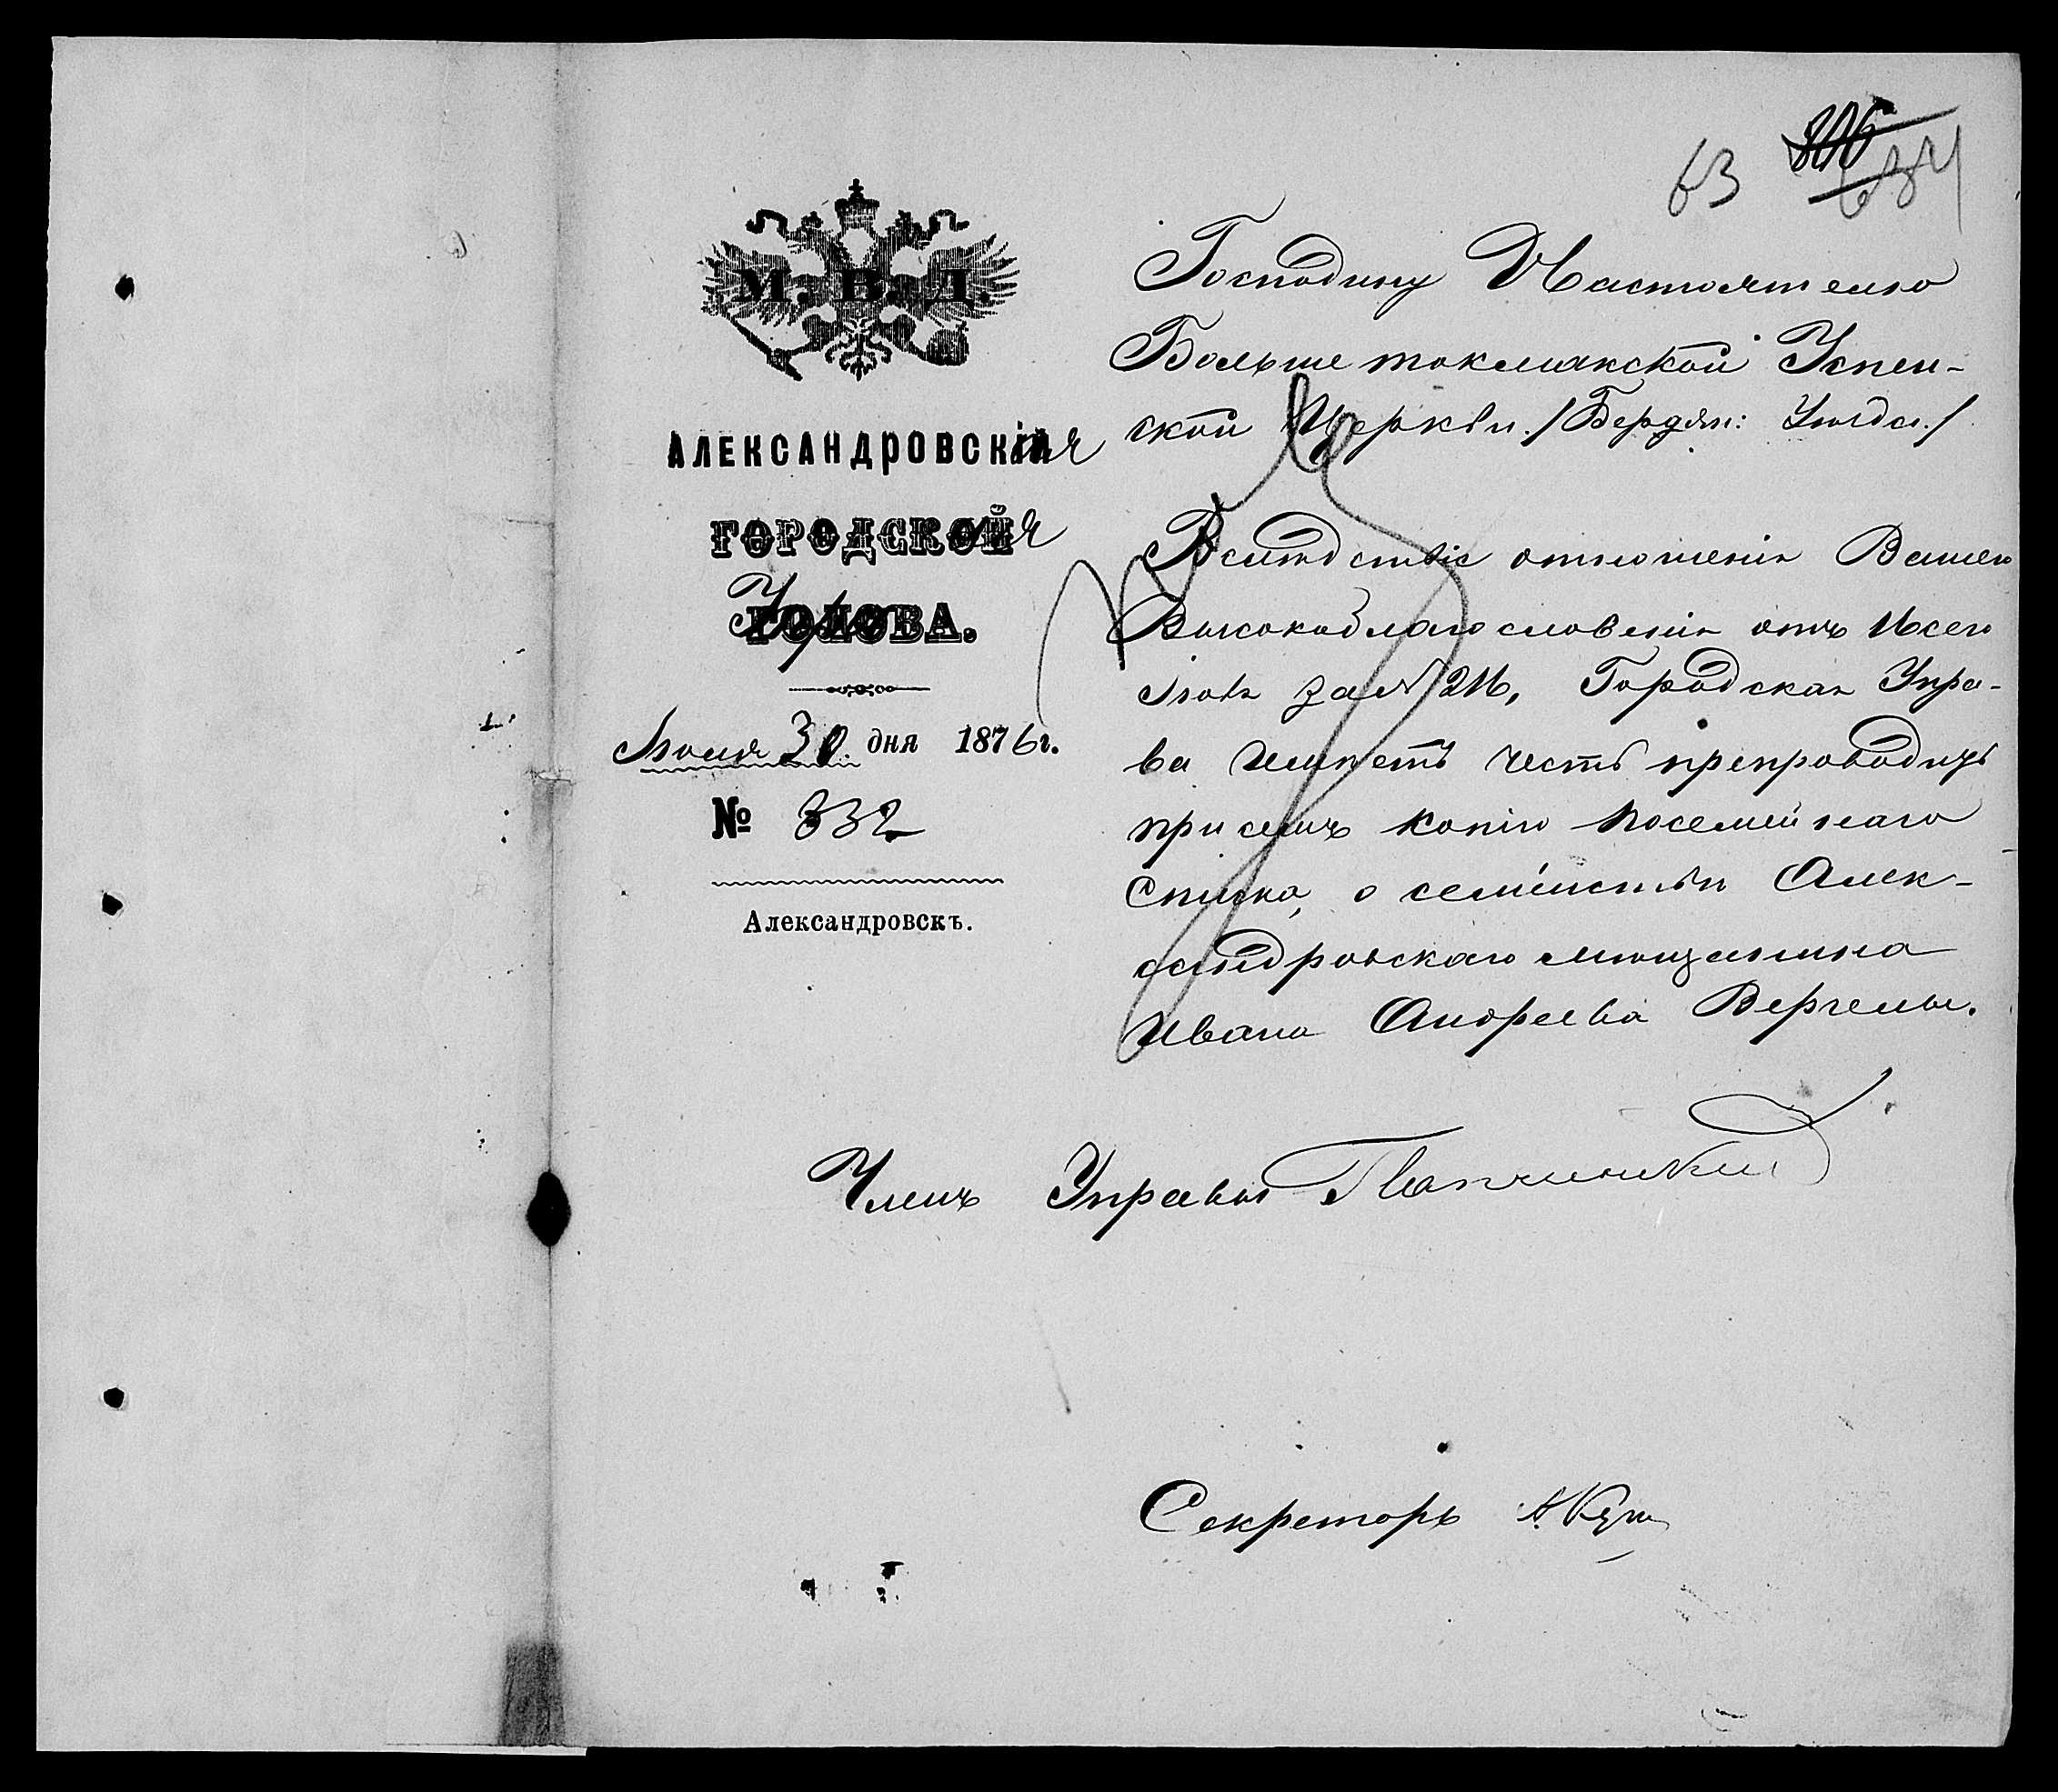 63 684
М. В. Д.
АЛЕКСАНДРОВСКАЯ
ГОРОДСКАЯ
Управа
Іюня 30 дня 1876 г.
№ 332
Александровскъ.
Господину Настоятелю
Больше токмакской Успен-
ской Церкви. /Бердян: Уѣзда./
Вслѣдствіе отношенія Вашего
Высокоблагословенія отъ
Іюня за № 216, Городская Упра-
ва имѣетъ честь препроводить
при семъ копію посемейнаго
Списка, о семействѣ Алек-
сандровскаго мѣщанина
Ивана Андреева Вергелы.
Членъ Управы
Секретарь